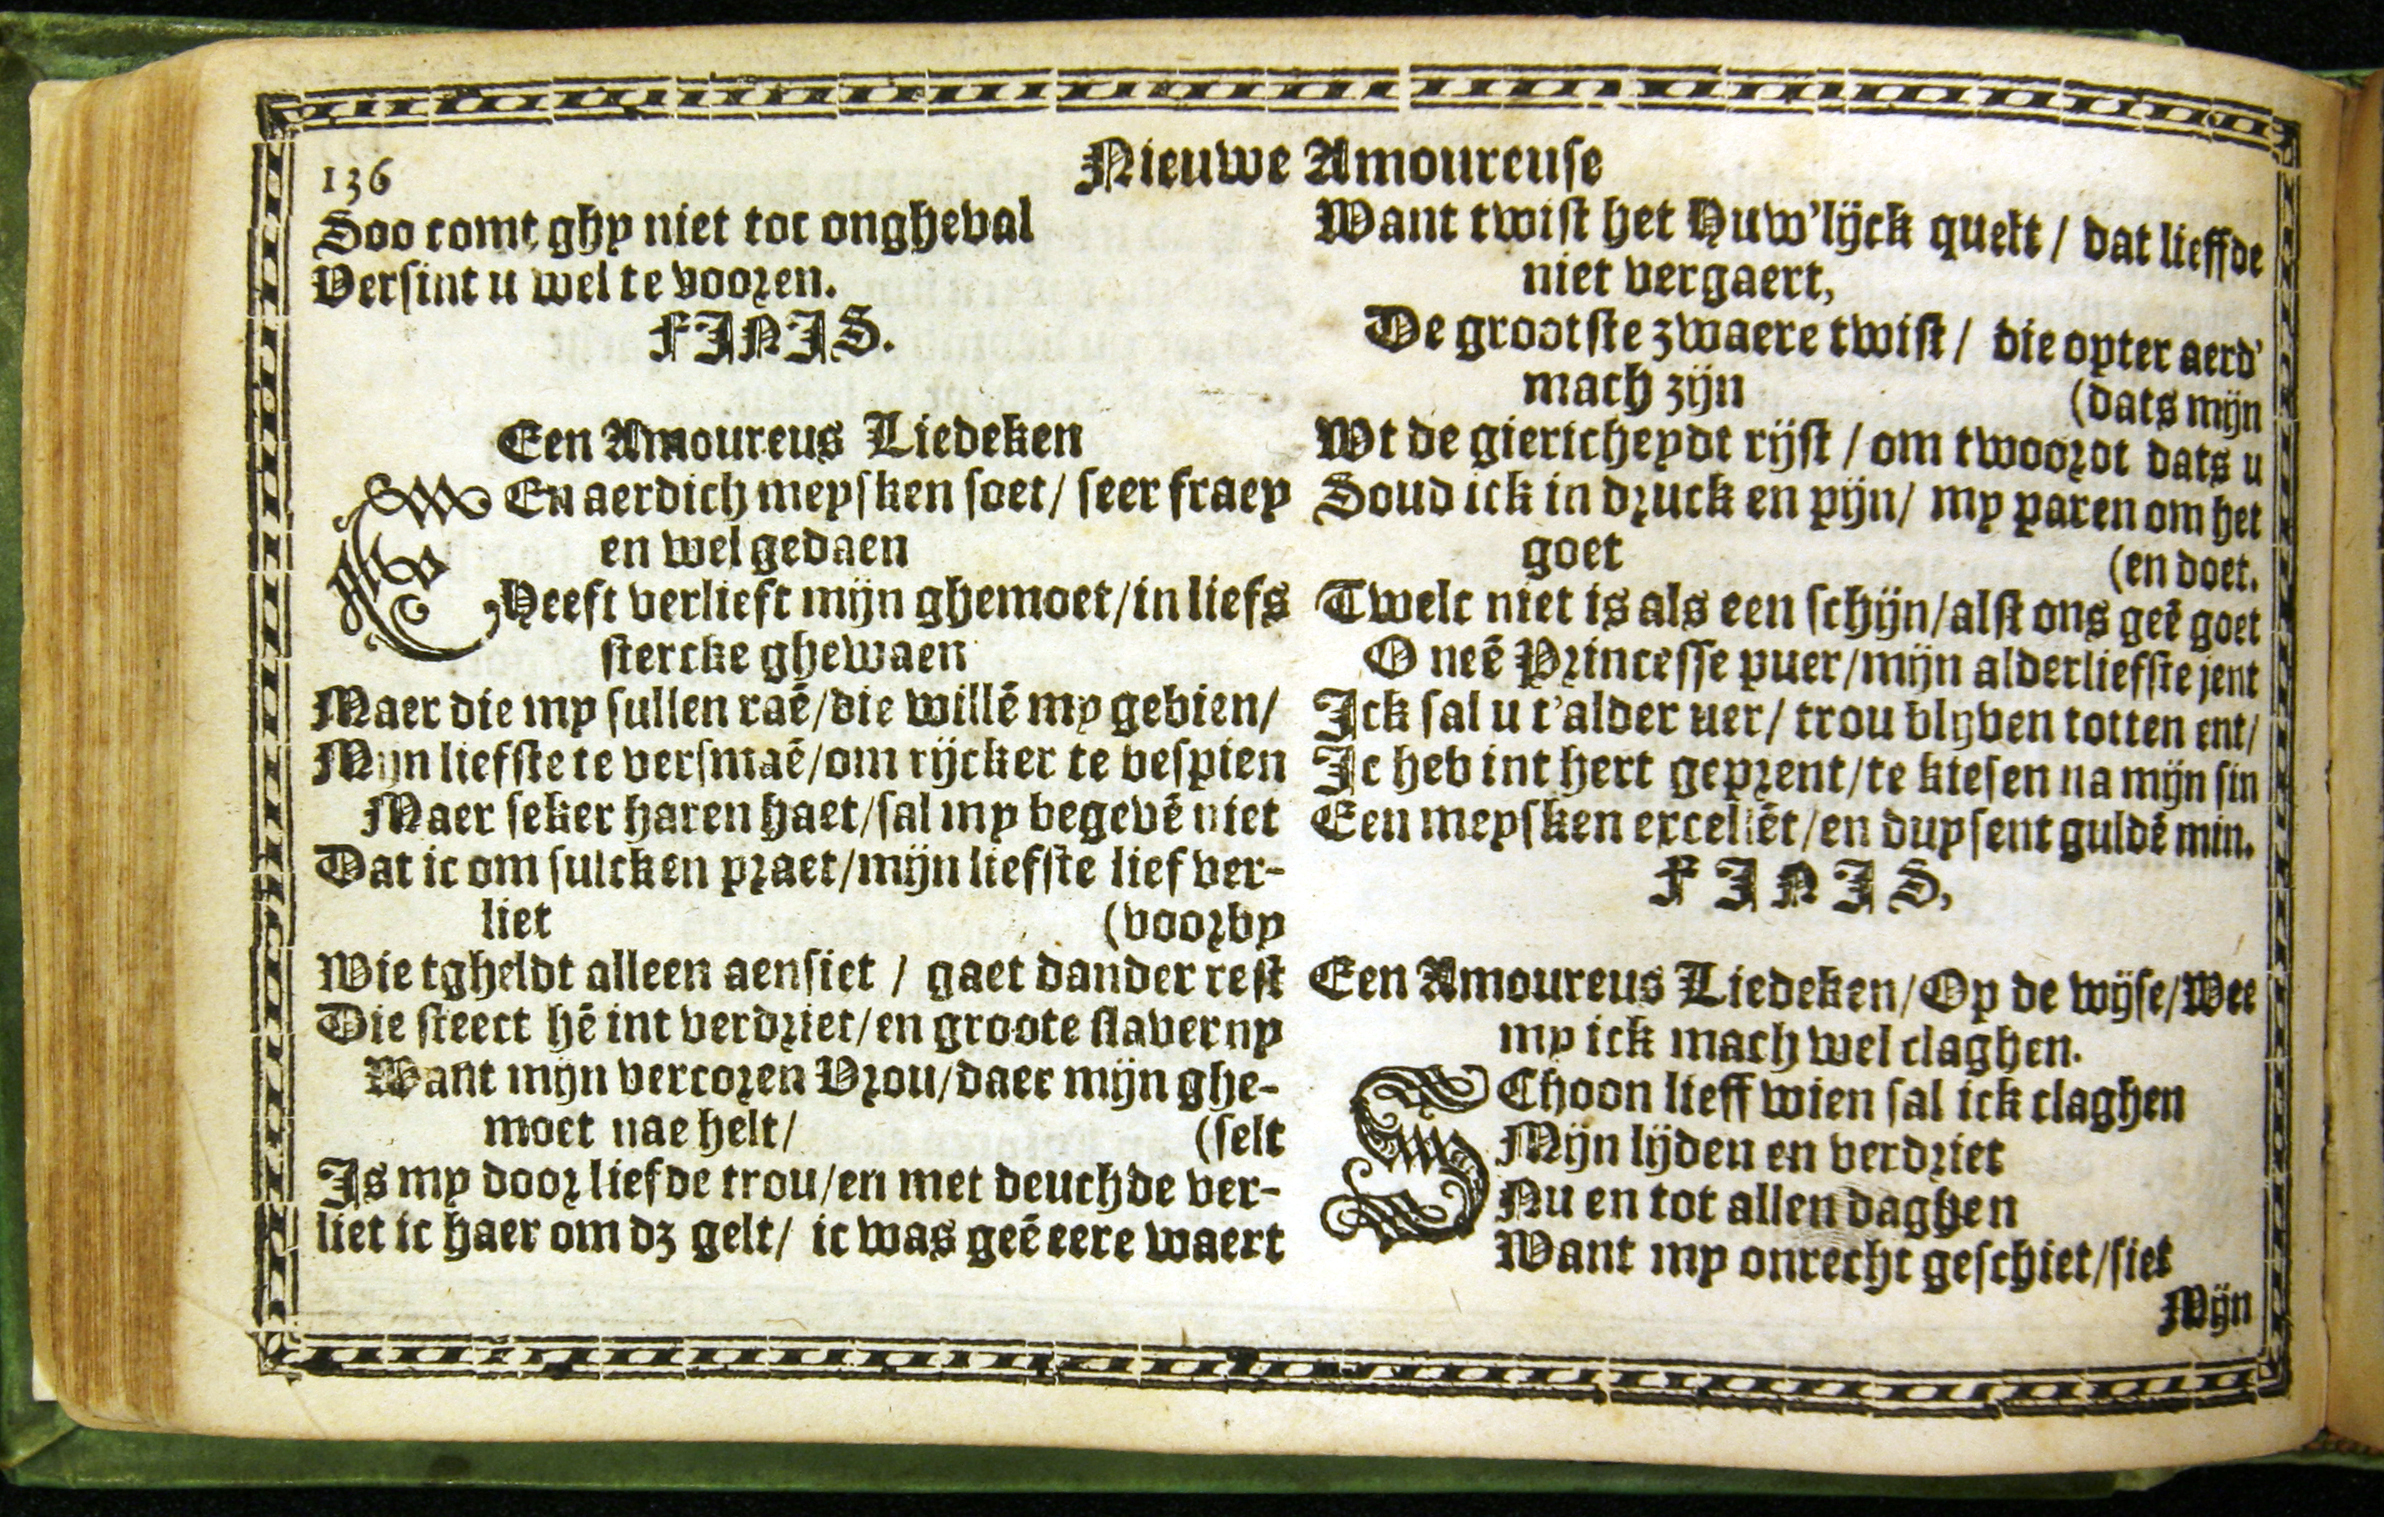 136
Nieuwe Amoureuse
Soo comt ghy niet tot ongheval
Versint u wel te vooren.
FINIS.
Een Amoureus Liedeken
EEn aerdich meysken soet/ seer fraey
en wel gedaen
Heeft verlieft mijn ghemoet/in liefs
stercke ghewaen
Maer die my sullen raē/die willē my gebien/
Mijn liefste te versmaē/om rijcker te bespien
Maer seker haren haet/sal my begevē niet
Dat ic om sulcken praet/mijn liefste lief ver-
liet (voorby
Wie tgheldt alleen aensiet / gaet dander rest
Die steect hē int verdriet/en groote slaverny
Want mijn vercoren Vrou/daer mijn ghe-
moet nae helt/ (selt
Is my door liefde trou/en met deuchde ver-
liet ic haer om dz gelt/ ic was geē eere waert
Want twist het Huw'lijck quelt / dat lieffde
niet vergaert,
De grootste zwaere twist / die opter aerd'
mach zijn (dats mijn
Wt de giericheydt rijst / om twoordt dats u
Soud ick in druck en pijn/ my paren om het
goet (en doet.
Twelc niet is als een schijn/alst ons geē goet
O neē Princesse puer/mijn alderliefste jent
Ick sal u t'alder uer/ trou blyven totten ent/
Ic heb int hert geprent/te kiesen na mijn sin
Een meysken excellēt/en duysent guldē min.
FINIS,
Een Amoureus Liedeken/Op de wijse/Wee
my ick mach wel claghen.
SChoon lieff wien sal ick claghen
Mijn lijden en verdriet
Nu en tot allen daghen
Want my onrecht geschiet/siet
Mijn